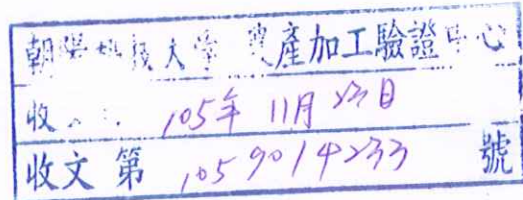 朝陽科技大學 農產加工驗證中心
收 105年 11月 23日
收文 第 1059014233 號